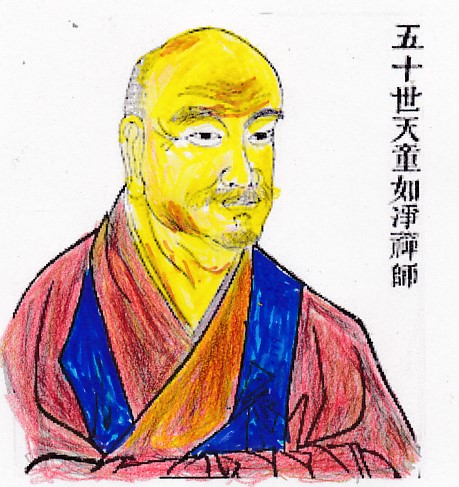 五十世天童如淨禪師